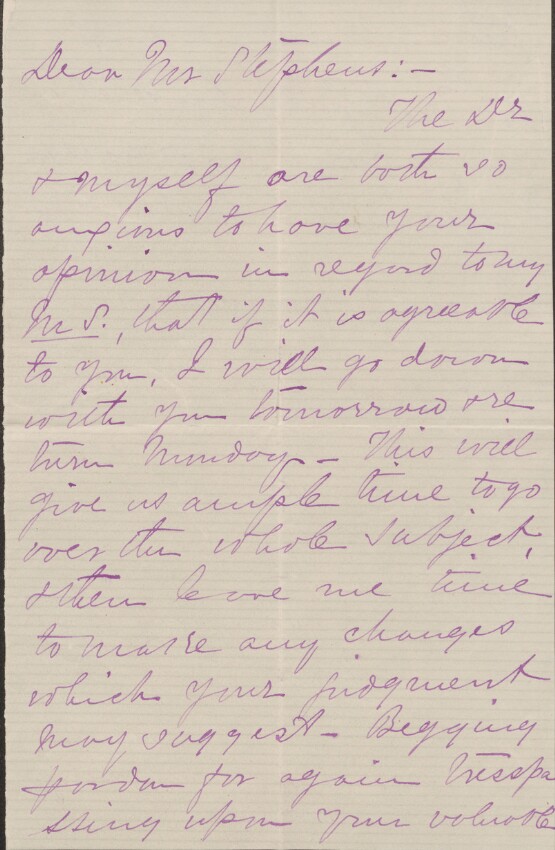 Dear Mr Stephens:—
The Dr
& myself are both so
anxious to have your
opinion in regard to my
MS., that if it is agreeable
to you, I will go down
with you tomorrow & re
turn Monday — This will
give us ample time to go
over the whole subject,
& then leave me time
to make any changes
which your judgment
may suggest — Begging
pardon for again trespa
ssing upon your valuable